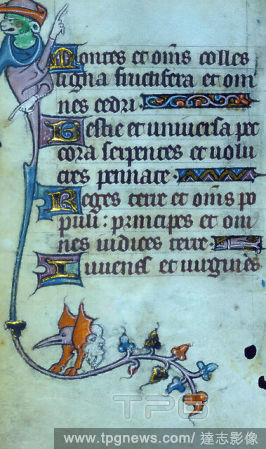 Montes et om̄s colles
ligna fructifera et om
nes cedri.
Bestie et universa pe
cora serpentes et volu
cres pennate.
Reges terre et om̄s po
puli: principes et om
nes iudices terre.
Iuvenes et virgines
TPG
www.tpgnews.com/ 達志影像